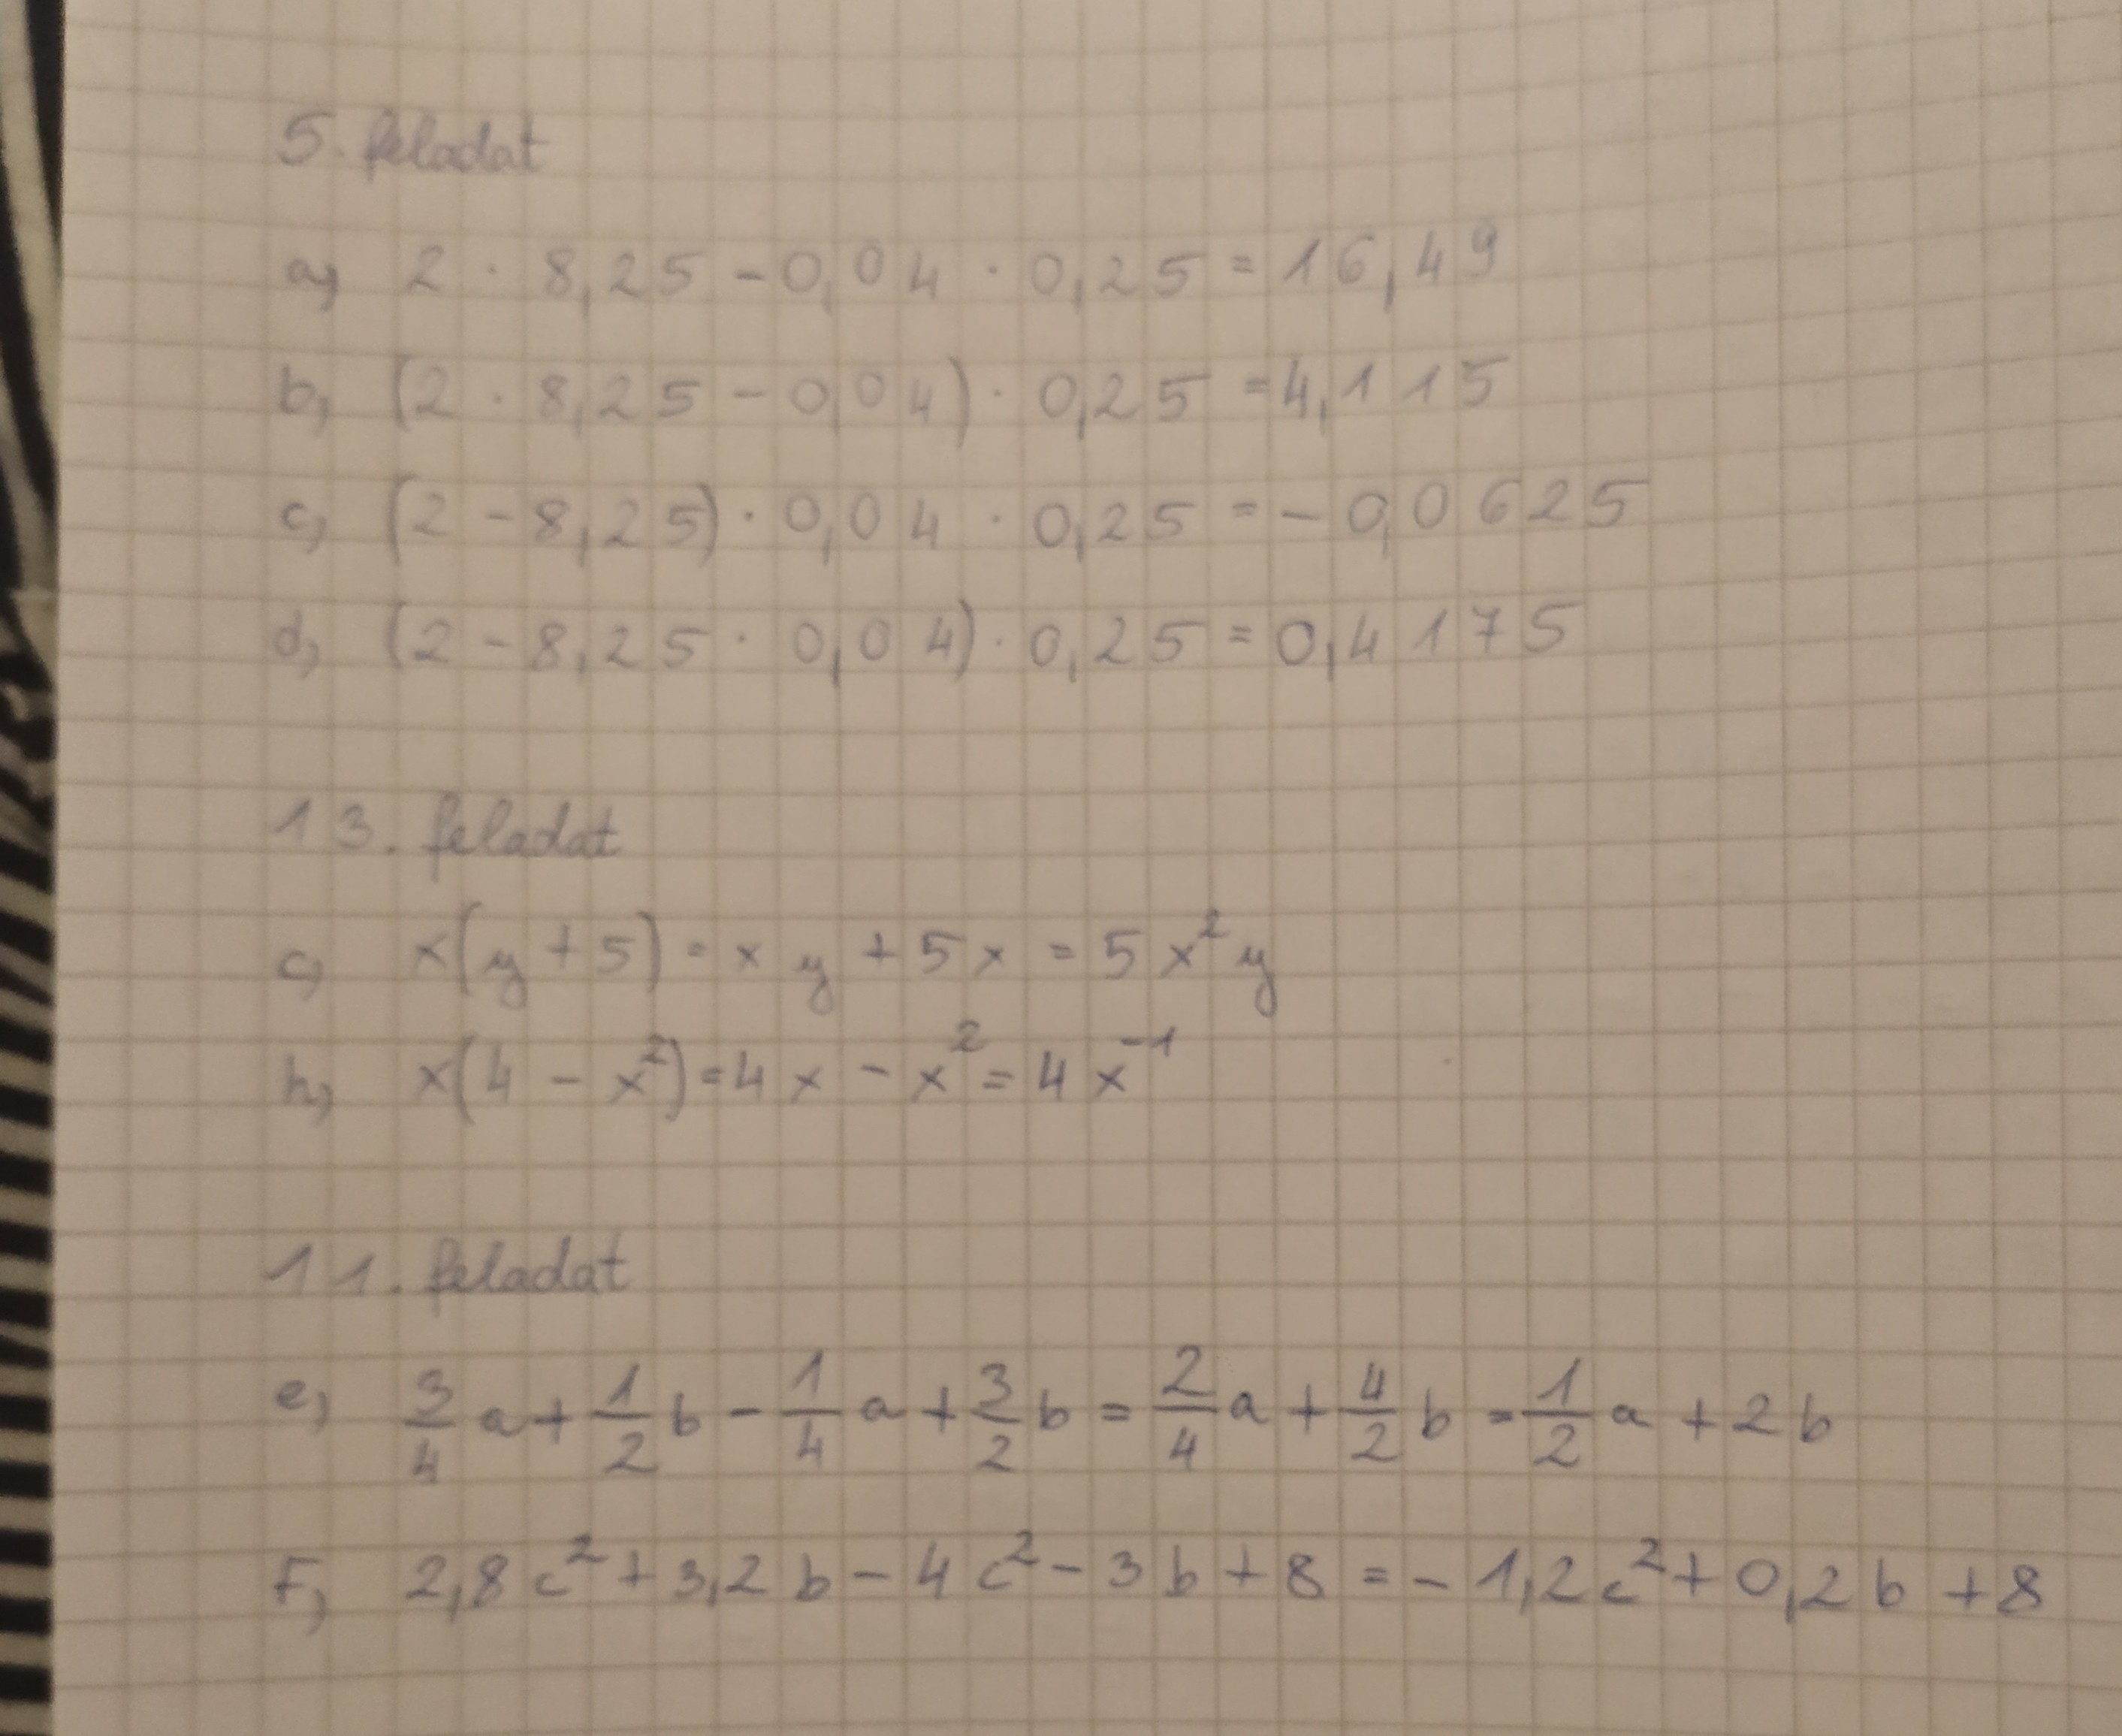 5. feladat
a, 2 · 8,25 - 0,04 · 0,25 = 16,49
b, (2 · 8,25 - 0,04) · 0,25 = 4,115
c, (2 - 8,25) · 0,04 · 0,25 = - 0,0625
d, (2 - 8,25 · 0,04) · 0,25 = 0,4175
13. feladat
c, x(y + 5) = xy + 5x = 5x²y
h, x(4 - x²) = 4x - x² = 4x⁻¹
11. feladat
e, 3/4 a + 1/2 b - 1/4 a + 3/2 b = 2/4 a + 4/2 b = 1/2 a + 2b
f, 2,8c² + 3,2b - 4c² - 3b + 8 = - 1,2c² + 0,2b + 8